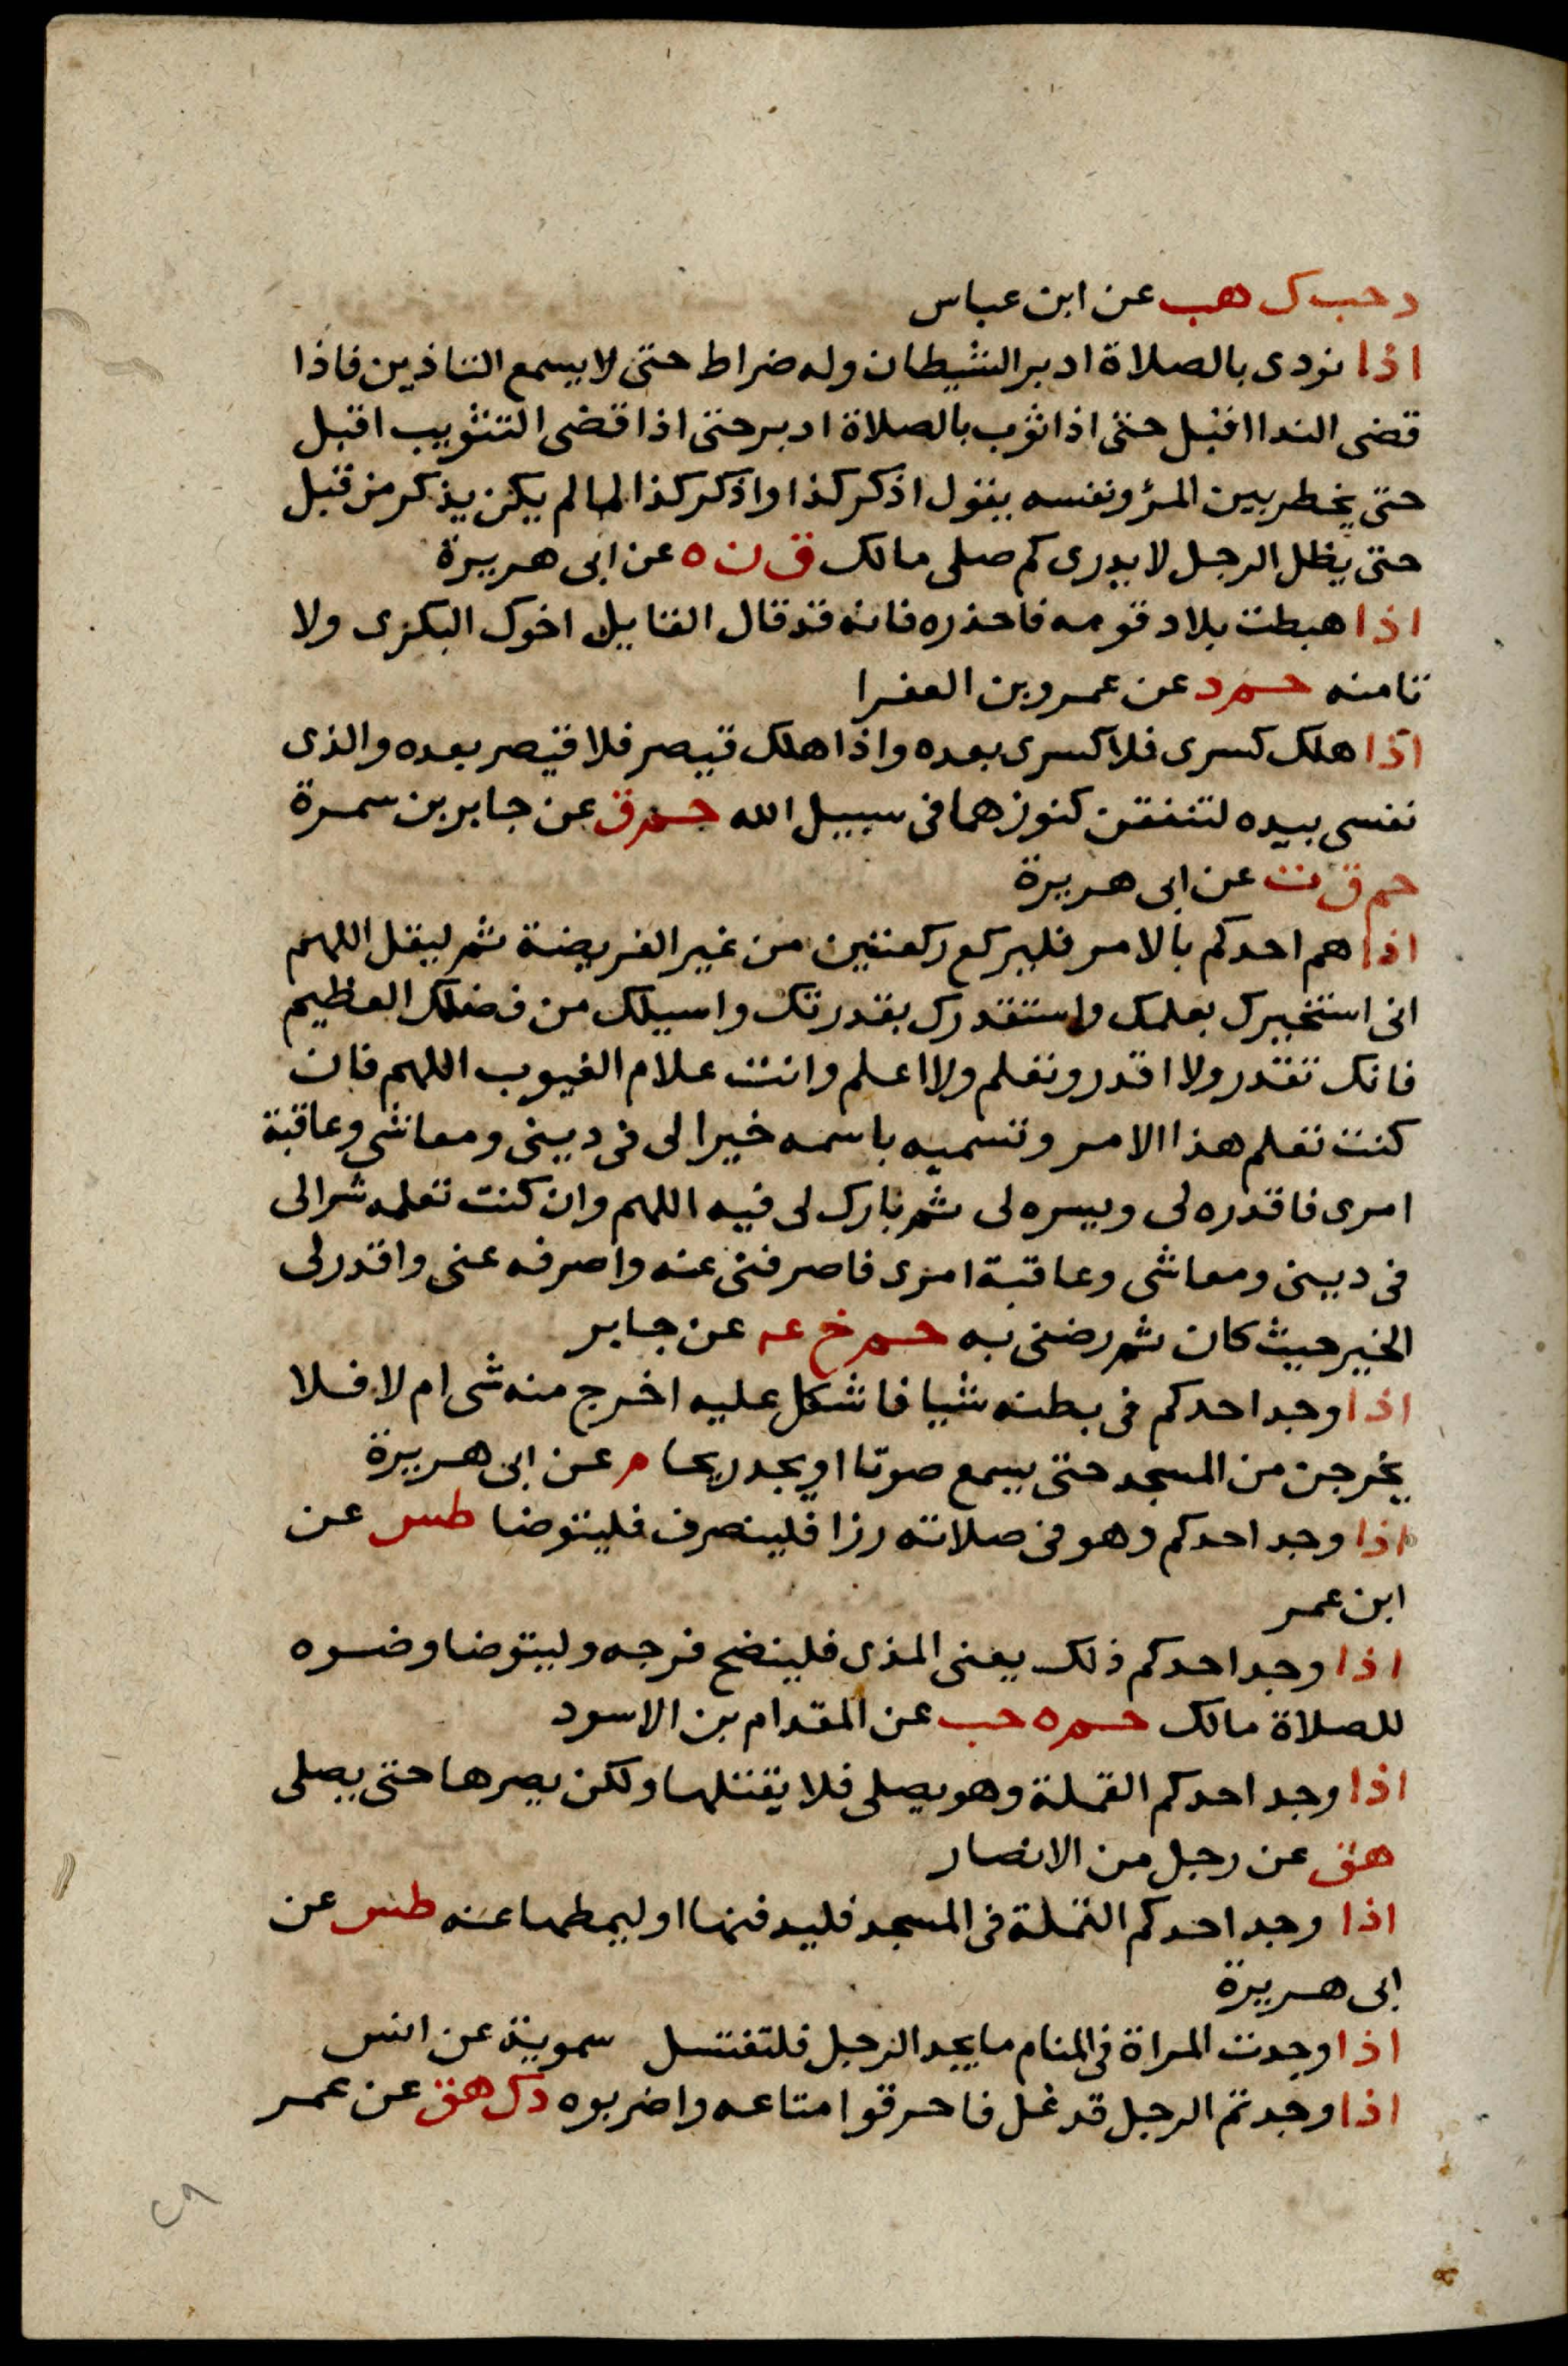 د حب ك هب عن ابن عباس
اذا نودى بالصلاة ادبر الشيطان وله ضراط حتى لا يسمع التاذين فاذا
قضى الندا اقبل حتى اذا ثوب بالصلاة ادبر حتى اذا قضى التثويب اقبل
حتى يخطر بين المرؤ ونفسه يقول اذكر كذا واذكر كذا لما لم يكن يذكر من قبل
حتى يظل الرجل لا يدرى كم صلى مالك ق ن ه عن ابى هريرة
اذا هبطت بلاد قومه فاحذره فانه قد قال القايل اخوك البكرى ولا
تامنه حم د عن عمرو بن الفغرا
اذا هلك كسرى فلا كسرى بعده واذا هلك قيصر فلا قيصر بعده والذى
نفسى بيده لتنفقن كنوزهما فى سبيل الله حم ق عن جابر بن سمرة
حم ق ت عن ابى هريرة
اذا هم احدكم بالامر فليركع ركعتين من غير الفريضة ثم ليقل اللهم
انى استخيرك بعلمك واستقدرك بقدرتك واسيلك من فضلك العظيم
فانك تقدر ولا اقدر وتعلم ولا اعلم وانت علام الغيوب اللهم فان
كنت تعلم هذا الامر وتسميه باسمه خيرا لى فى دينى ومعاشى وعاقبة
امرى فاقدره لى ويسره لى ثم بارك لى فيه اللهم وان كنت تعلمه شرا لى
فى دينى ومعاشى وعاقبة امرى فاصرفنى عنه واصرفه عنى واقدر لى
الخير حيث كان ثم رضنى به حم خ عه عن جابر
اذا وجد احدكم فى بطنه شيا فاشكل عليه اخرج منه شى ام لا فلا
يخرجن من المسجد حتى يسمع صوتا او يجد ريحا م عن ابى هريرة
اذا وجد احدكم وهو فى صلاته رزا فلينصرف فليتوضا طس عن
ابن عمر
اذا وجد احدكم ذلك يعنى المذى فلينضح فرجه وليتوضا وضوه
للصلاة مالك حم ه حب عن المقدام بن الاسود
اذا وجد احدكم القملة وهو يصلى فلا يقتلها ولكن يصرها حتى يصلى
هق عن رجل من الانصار
اذا وجد احدكم القملة فى المسجد فليدفنها او ليمطها عنه طس عن
ابى هريرة
اذا وجدت المراة فى المنام ما يجد الرجل فلتغتسل سموية عن انس
اذا وجدتم الرجل قد غل فاحرقوا متاعه واضربوه د ك هق عن عمر